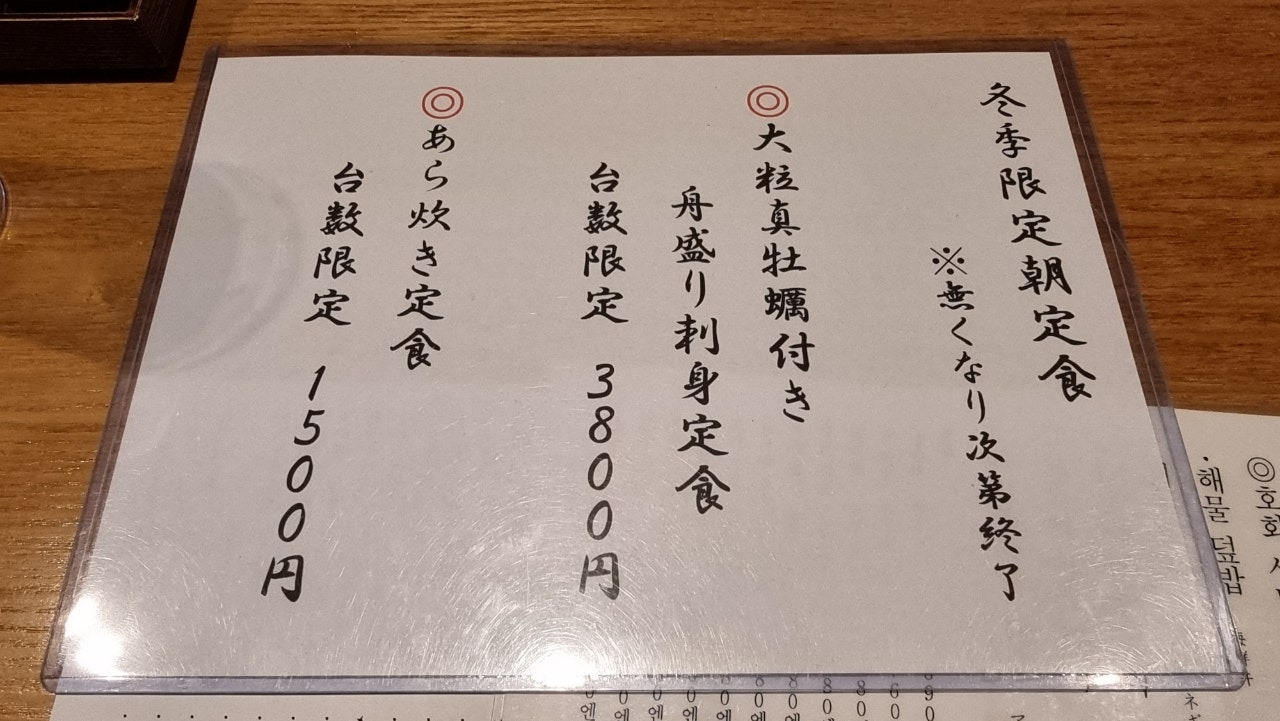 冬季限定朝定食
※無くなり次第終了
◎大粒真牡蠣付き
舟盛り刺身定食
台数限定 3800円
◎あら炊き定食
台数限定 1500円
・해물 덮밥